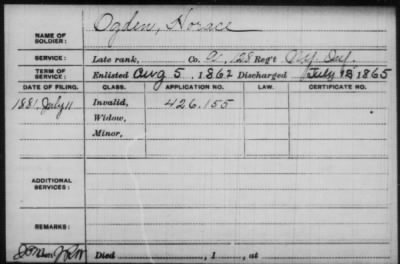 Ogden, Horace
NAME OF
SOLDIER:
SERVICE: Late rank, Co. A, 128 Reg't N.Y. Inf.
TERM OF
SERVICE: Enlisted Aug 5, 1862 Discharged July 12, 1865
DATE OF FILING. CLASS. APPLICATION NO. LAW. CERTIFICATE NO.
1881, July 11 Invalid, 426.155
Widow,
Minor,
ADDITIONAL
SERVICES:
REMARKS:
Died , 1 , at